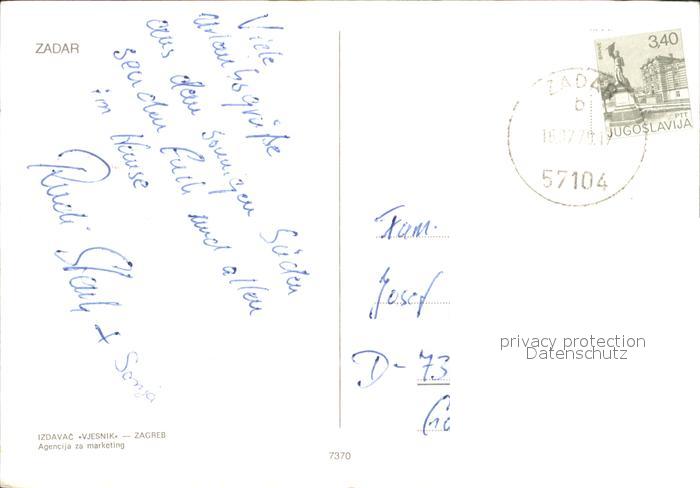 ZADAR
Viele
Urlaubsgrüße
aus dem sonnigen Süden
senden Euch und allen
im Hause
Rudi
+ Sonja
IZDAVAČ «VJESNIK» — ZAGREB
Agencija za marketing
7370
3,40
PTT
JUGOSLAVIJA
ZADAR
b
57104
Fam.
Josef
D- 73
privacy protection
Datenschutz